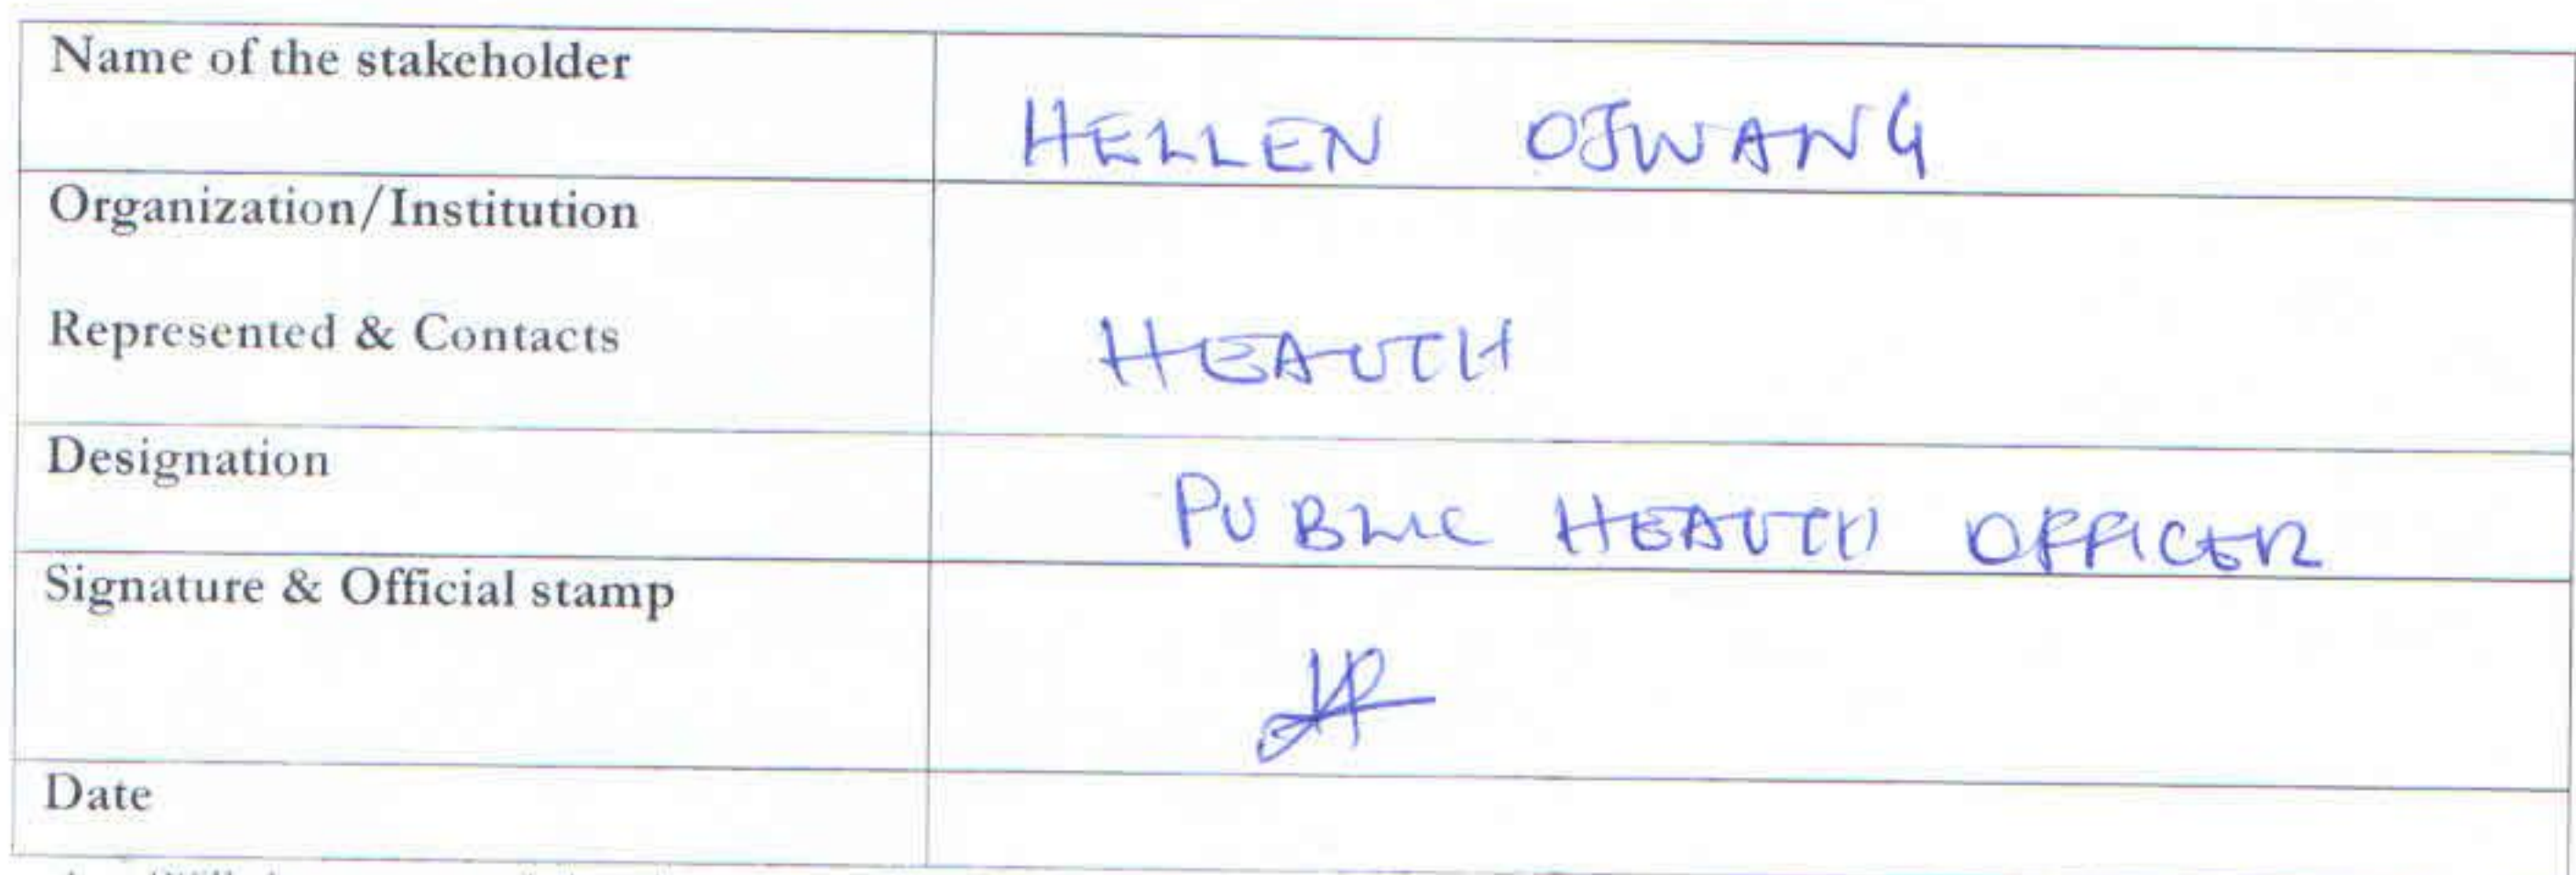 Name of the stakeholder
HELLEN OJWANG
Organization/Institution
Represented & Contacts
HEALTH
Designation
PUBLIC HEALTH OFFICER
Signature & Official stamp
Date